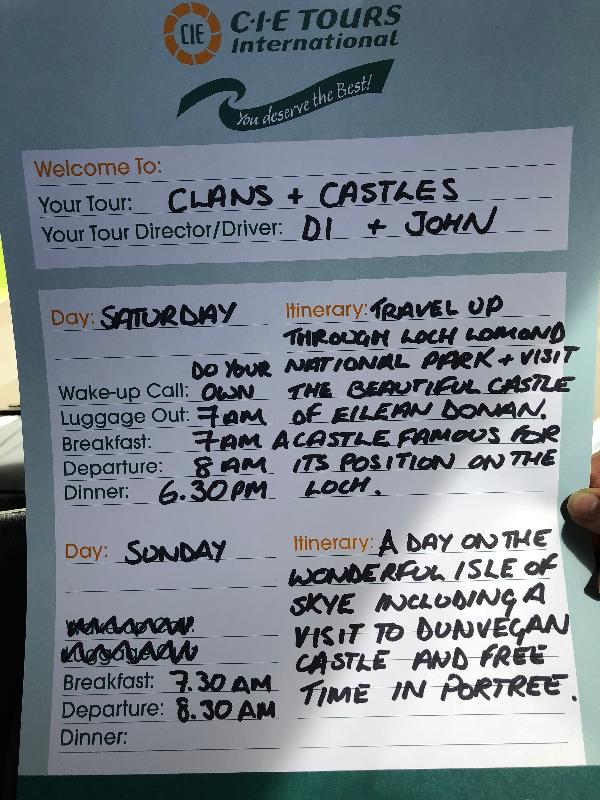 CIE
C·I·E TOURS
International
You deserve the Best!
Welcome To:
Your Tour: CLANS + CASTLES
Your Tour Director/Driver: DI + JOHN
Day: SATURDAY
DO YOUR
Wake-up Call: OWN
Luggage Out: 7AM
Breakfast: 7AM
Departure: 8AM
Dinner: 6.30PM
Itinerary: TRAVEL UP
THROUGH LOCH LOMOND
NATIONAL PARK + VISIT
THE BEAUTIFUL CASTLE
OF EILEAN DONAN.
A CASTLE FAMOUS FOR
ITS POSITION ON THE
LOCH.
Day: SUNDAY
Breakfast: 7.30 AM
Departure: 8.30 AM
Dinner:
Itinerary: A DAY ON THE
WONDERFUL ISLE OF
SKYE INCLUDING A
VISIT TO DUNVEGAN
CASTLE AND FREE
TIME IN PORTREE.